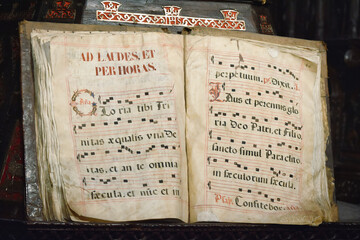 AD LAUDES, ET
PER HORAS.
Loria tibi Tri
nitas æqualis vna De
itas, et an te omnia
sæcula, et nũc et in
perpetuum, ps. Dixit.
Laus et perennis glo
ria Deo Patri, et Filio,
sancto simul Paraclito
in sæculorum sæcula.
Ps. Confitebor